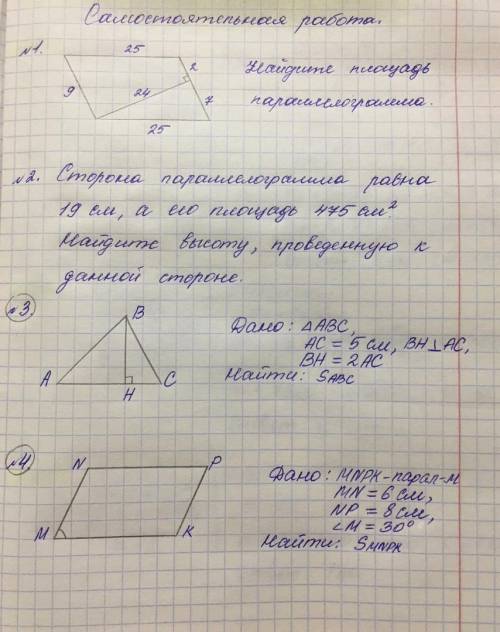 Самостоятельная работа.
№1.
25
2
9
24
7
25
Найдите площадь
параллелограмма.
№2. Сторона параллелограмма равна
19 см, а его площадь 475 см²
Найдите высоту, проведенную к
данной стороне.
№3
B
A
H
C
Дано: △ABC,
AC = 5 см, BH⊥AC,
BH = 2AC
Найти: SABC
№4.
N
P
M
K
Дано: MNPK-парал-м
MN = 6 см,
NP = 8 см,
∠M = 30°
Найти: SMNPK